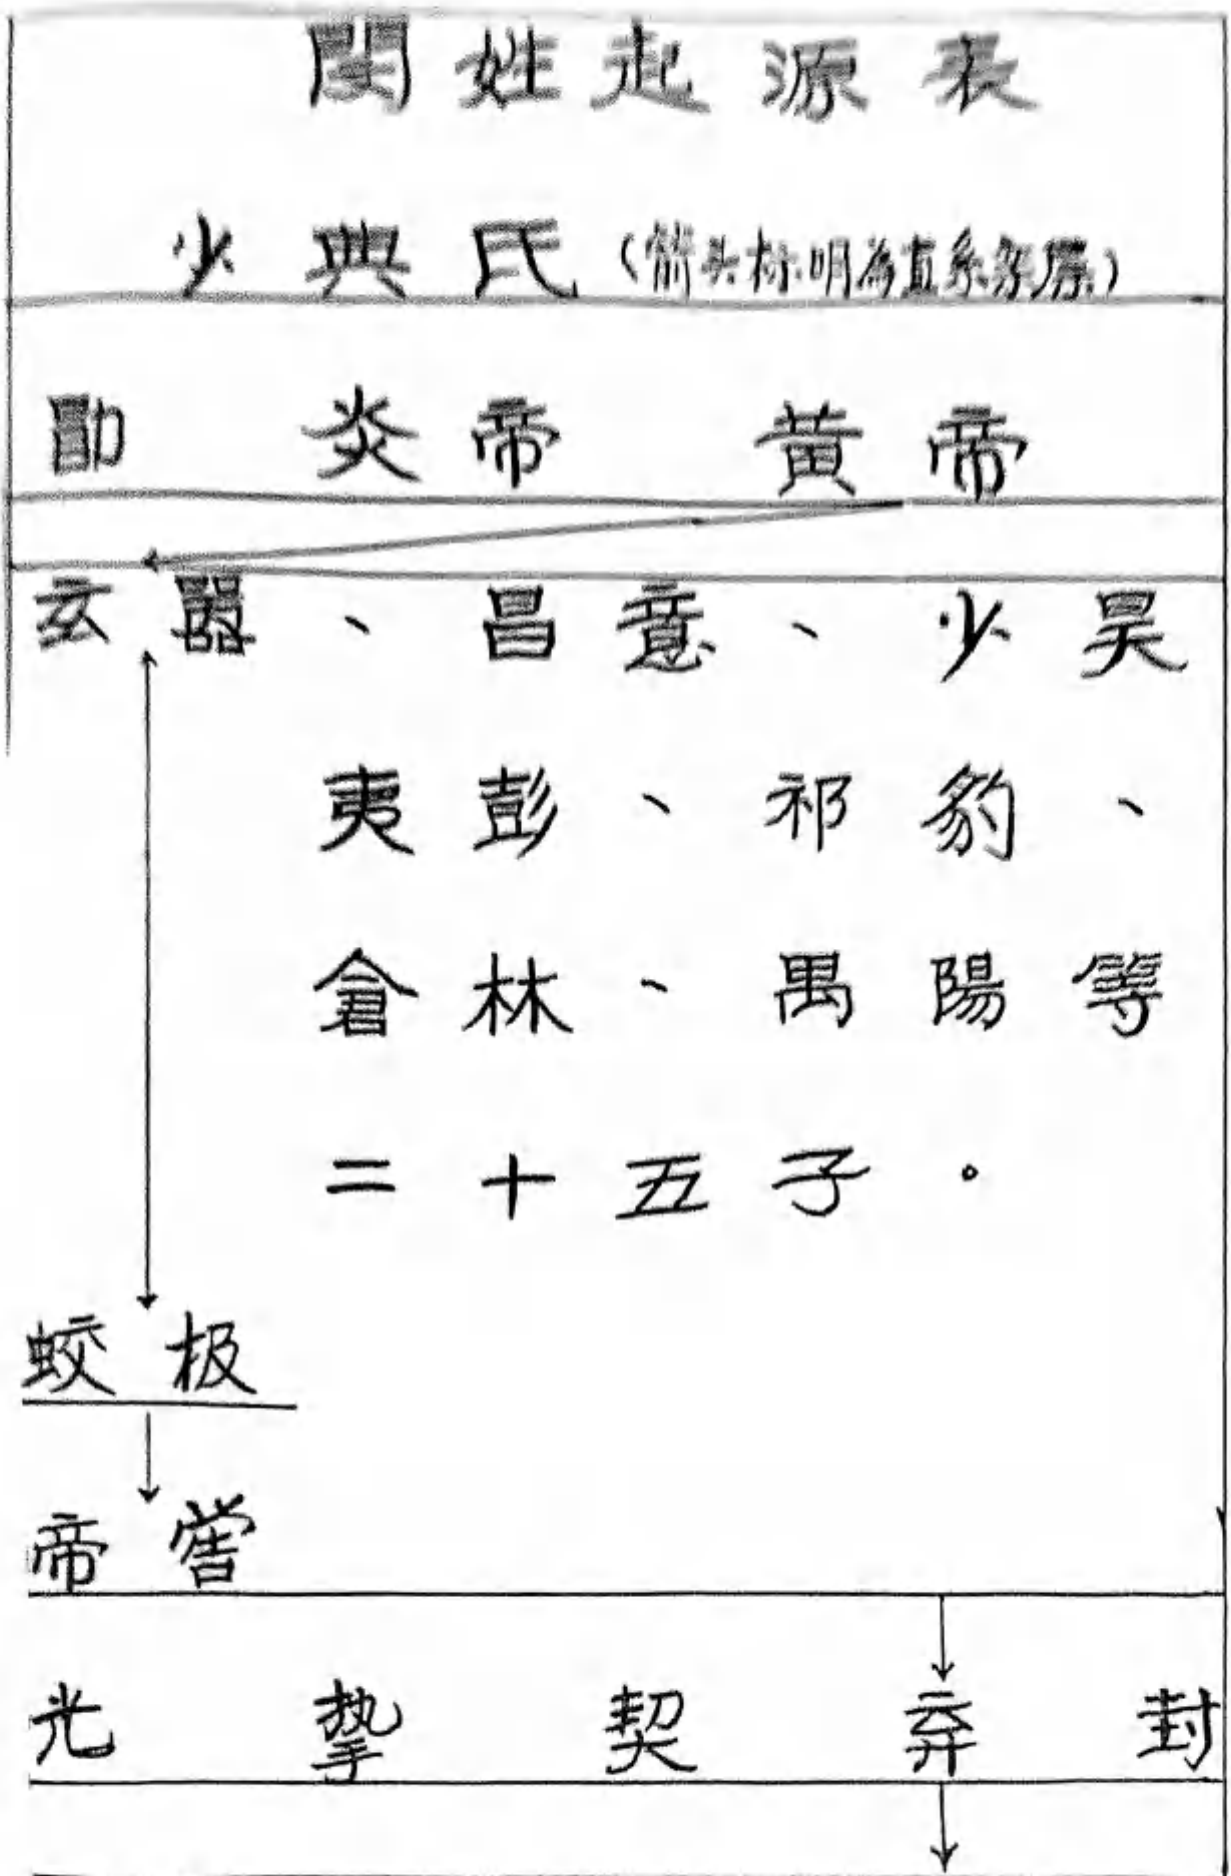 閔姓起源表
少典氏（箭头标明為直系）
炎帝 黃帝
玄囂、昌意、少昊
夷彭、祁豹、
倉林、禺陽等
二十五子。
蛟极
帝喾
光 挚 契 弃 封